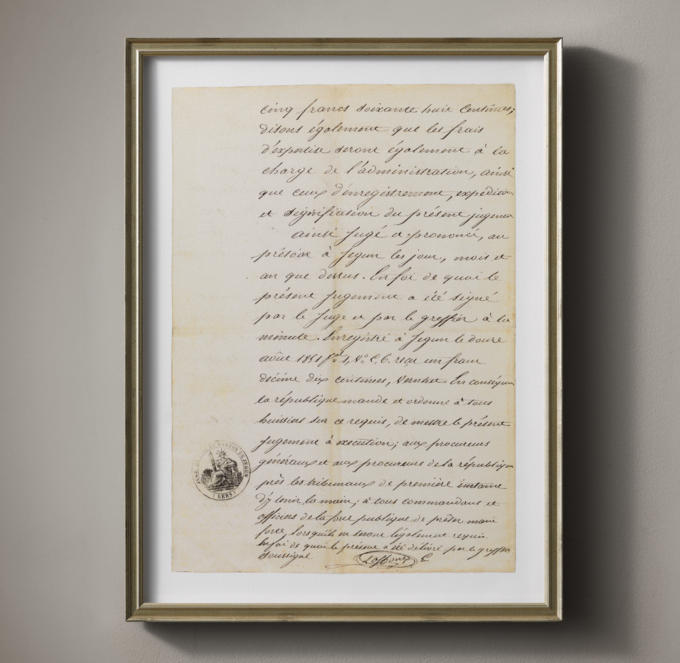 cinq francs soixante huit centimes;
disons également que les frais
d'expertise seront également à la
charge de l'administration, ainsi
que ceux d'enregistrement, expédition
et signification du présent jugement
ainsi jugé et prononcé, au
prétoire à Jegun les jour, mois et
an que dessus. En foi de quoi le
présent jugement a été signé
par le juge et par le greffier à la
minute. Enregistré à Jegun le douze
août 1851 f° V° C. 6. reçu un franc
décime dix centimes, En conséquence
la république mande et ordonne à tous
huissiers sur ce requis, de mettre le présent
jugement à exécution; aux procureurs
généraux et aux procureurs de la république
près les tribunaux de première instance
d'y tenir la main; à tous commandants et
officiers de la force publique de prêter main
force, lorsqu'ils en seront légalement requis
En foi de quoi le présent a été délivré par le greffier
soussigné
GERS